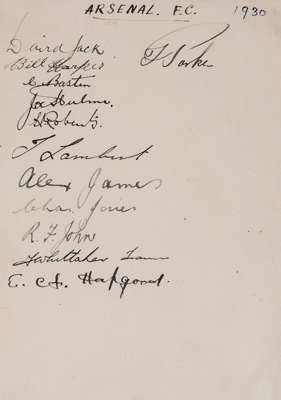 ARSENAL. F.C. 1930
David Jack
Bill Harper
T Parker
C Bastin
Joe Hulme.
H Roberts.
J Lambert
Alex James
Chas. Jones
R. F. John
J Whittaker
E. A. Hapgood.